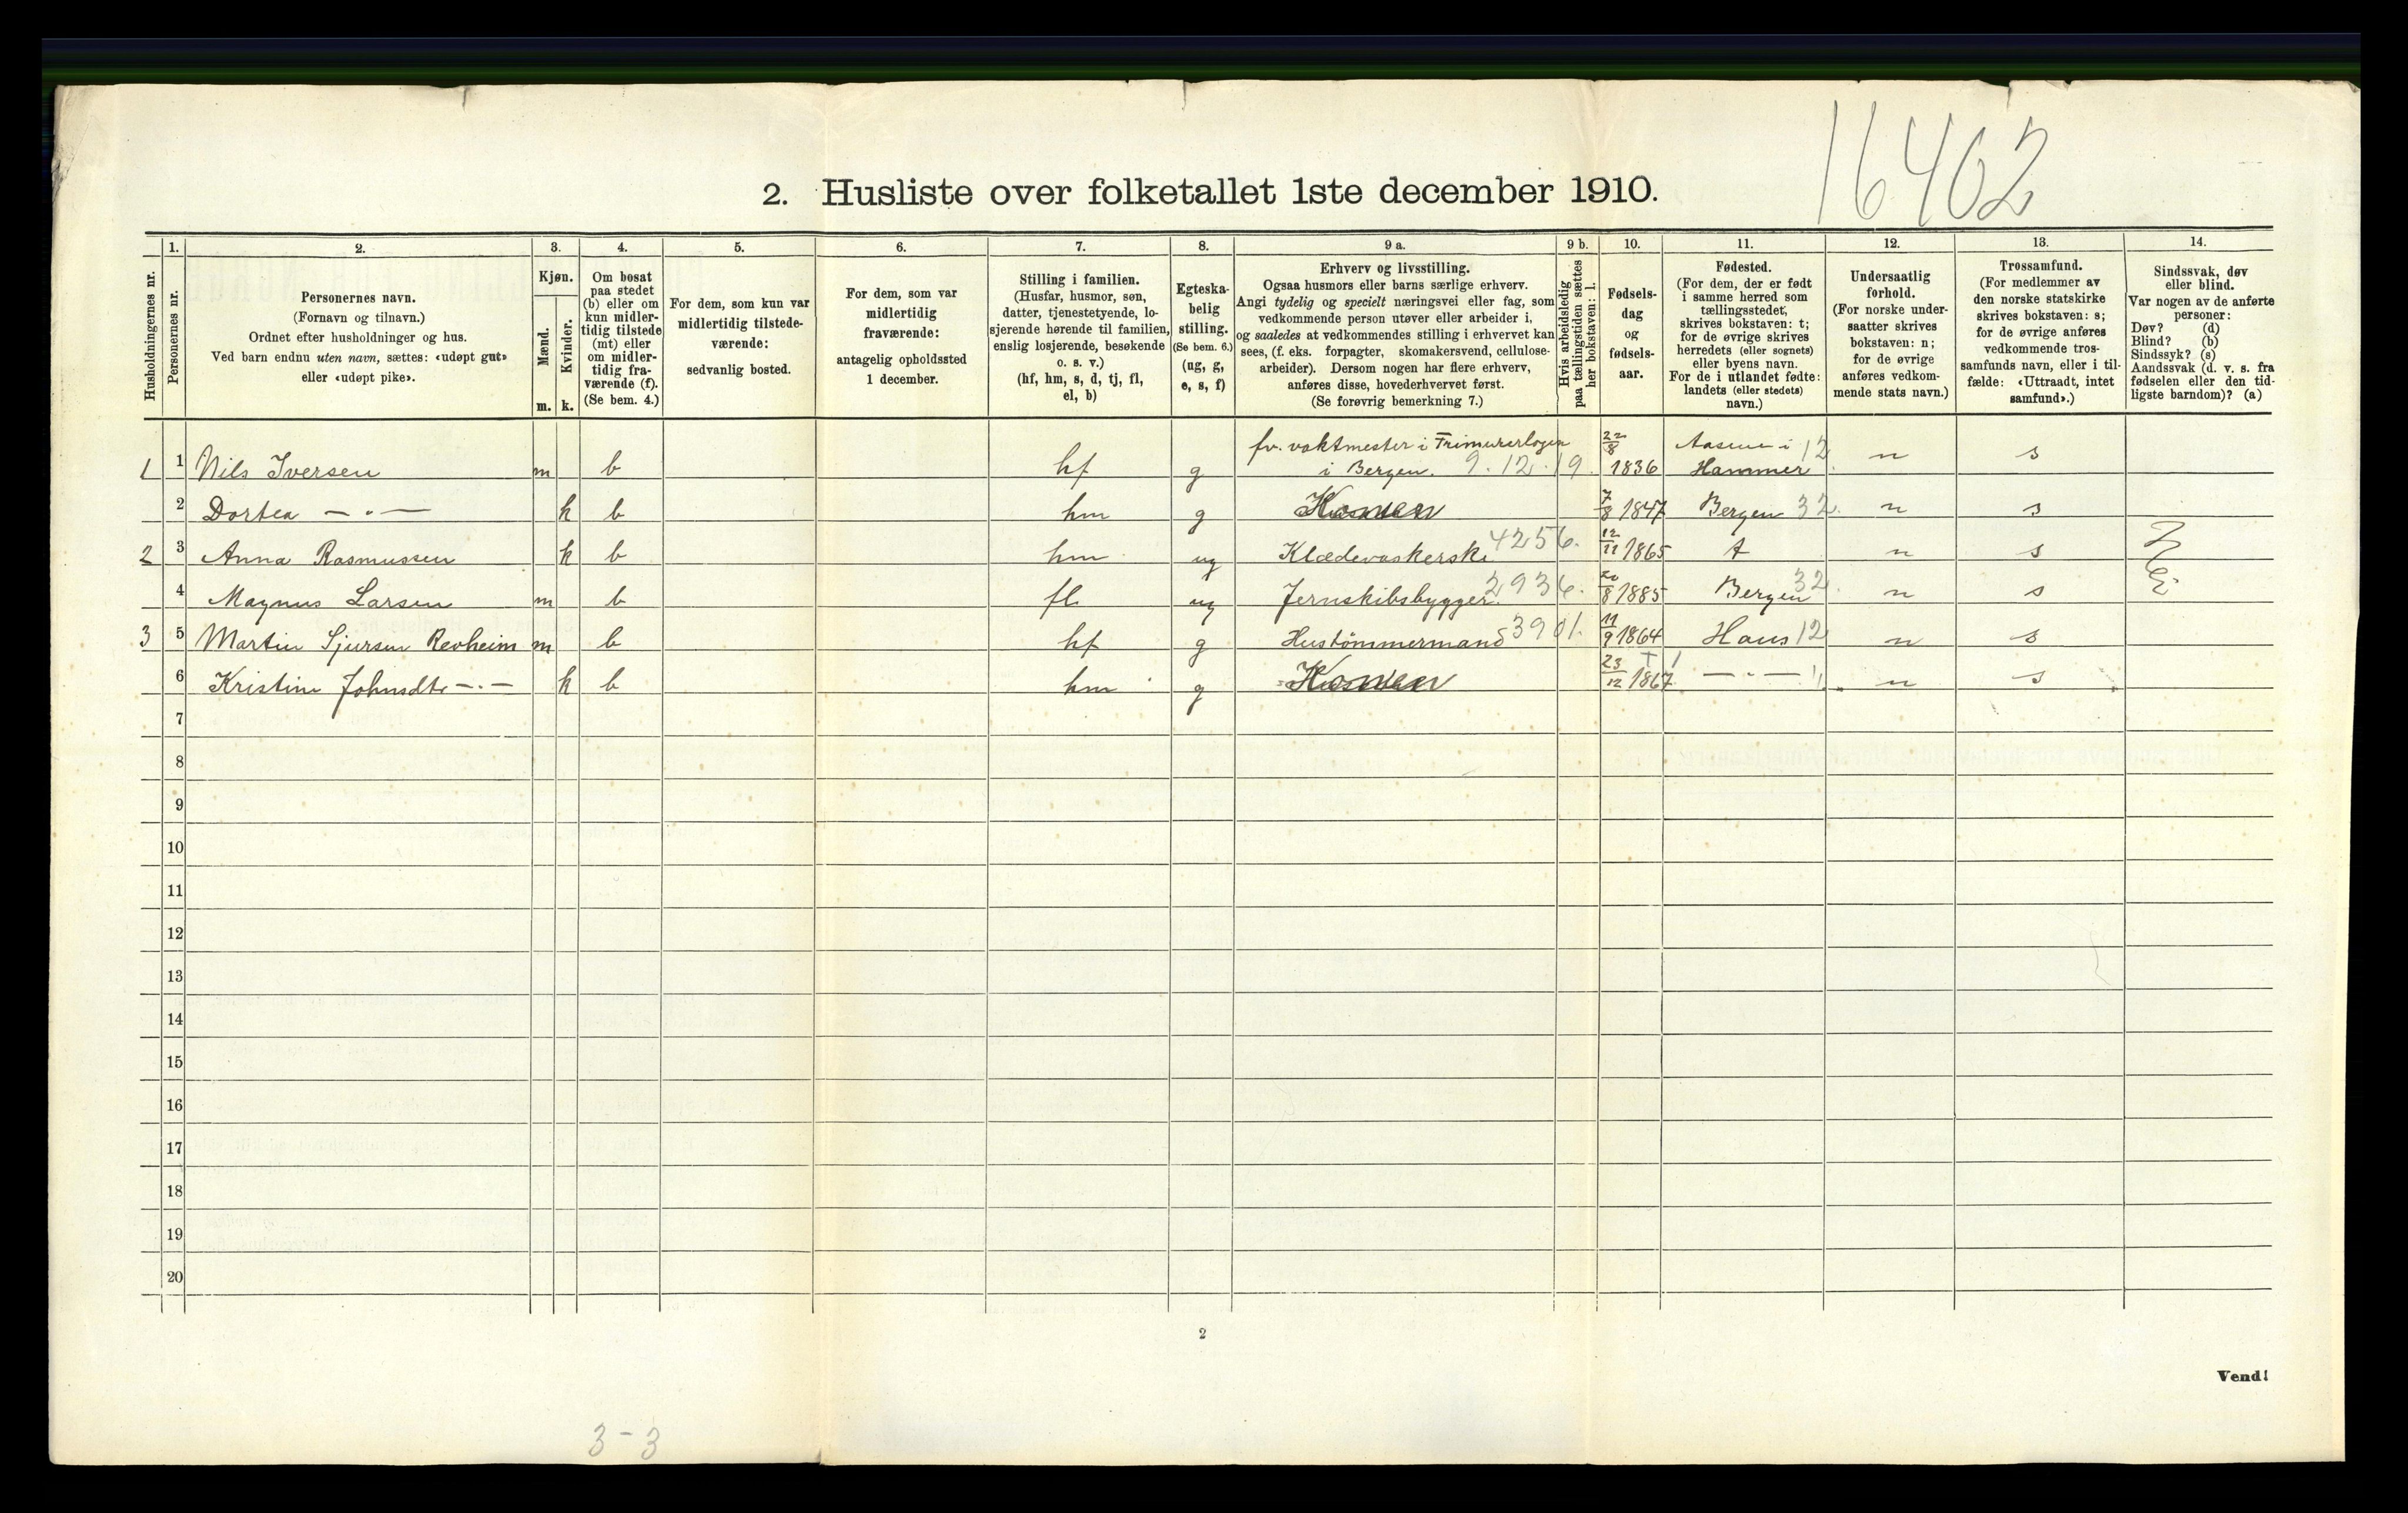 16402
2. Husliste over folketallet 1ste december 1910.
Husholdningernes nr.
1. Personernes nr.
2. Personernes navn.
(Fornavn og tilnavn.)
Ordnet efter husholdninger og hus.
Ved barn endnu uten navn, sættes: «udøpt gut»
eller «udøpt pike».
3. Kjøn.
Mænd. m.
Kvinder. k.
4. Om bosat
paa stedet
(b) eller om
kun midler-
tidig tilstede
(mt) eller
om midler-
tidig fra-
værende (f).
(Se bem. 4.)
5. For dem, som kun var
midlertidig tilstede-
værende:
sedvanlig bosted.
6. For dem, som var
midlertidig
fraværende:
antagelig opholdssted
1 december.
7. Stilling i familien.
(Husfar, husmor, søn,
datter, tjenestetyende, lo-
sjerende hørende til familien,
enslig losjerende, besøkende
o. s. v.)
(hf, hm, s, d, tj, fl,
el, b)
8. Egteska-
belig
stilling.
(Se bem. 6.)
(ug, g,
e, s, f)
9 a. Erhverv og livsstilling.
Ogsaa husmors eller barns særlige erhverv.
Angi tydelig og specielt næringsvei eller fag, som
vedkommende person utøver eller arbeider i,
og saaledes at vedkommendes stilling i erhvervet kan
sees, (f. eks. forpagter, skomakersvend, cellulose-
arbeider). Dersom nogen har flere erhverv,
anføres disse, hovederhvervet først.
(Se forøvrig bemerkning 7.)
9 b. Hvis arbeidsledig
paa tællingstiden sættes
her bokstaven: l.
10. Fødsels-
dag
og
fødsels-
aar.
11. Fødested.
(For dem, der er født
i samme herred som
tællingsstedet,
skrives bokstaven: t;
for de øvrige skrives
herredets (eller sognets)
eller byens navn.
For de i utlandet fødte:
landets (eller stedets)
navn.)
12. Undersaatlig
forhold.
(For norske under-
saatter skrives
bokstaven: n;
for de øvrige
anføres vedkom-
mende stats navn.)
13. Trossamfund.
(For medlemmer av
den norske statskirke
skrives bokstaven: s;
for de øvrige anføres
vedkommende tros-
samfunds navn, eller i til-
fælde: «Uttraadt, intet
samfund».)
14. Sindssvak, døv
eller blind.
Var nogen av de anførte
personer:
Døv? (d)
Blind? (b)
Sindssyk? (s)
Aandssvak (d. v. s. fra
fødselen eller den tid-
ligste barndom)? (a)
1 1 Nils Iversen m b hf g fv. vaktmester i Frimurerlogen
i Bergen. 9.12.19. 22/8 1836 Aasene i Hammer 12 n s
2 Dortea — " — k b hm g 7/8 1847 Bergen 32. n s
2 3 Anna Rasmussen k b hm ug Klædevaskerske 4256. 12/11 1865 t n s
4 Magnus Larsen m b fl ug Jernskibsbygger 2936. 20/8 1885 Bergen 32. n s
3 5 Martin Sjursen Revheim m b hf g Hustömmermand 3901. 11/9 1864 Haus 12 n s
6 Kristine Johnsdtr — " — k b hm g 23/12 1867 — " — n s
7
8
9
10
11
12
13
14
15
16
17
18
19
20
2
Vend!
3-3